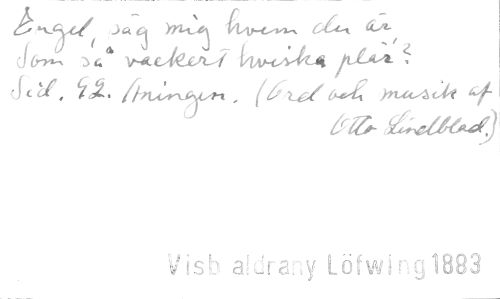 Engel, säg mig hvem du är,
Som så vackert hviska plär?
Sid. 92. Aningen. (Ord och musik af
Otto Lindblad.)
Visb aldrany Löfwing 1883